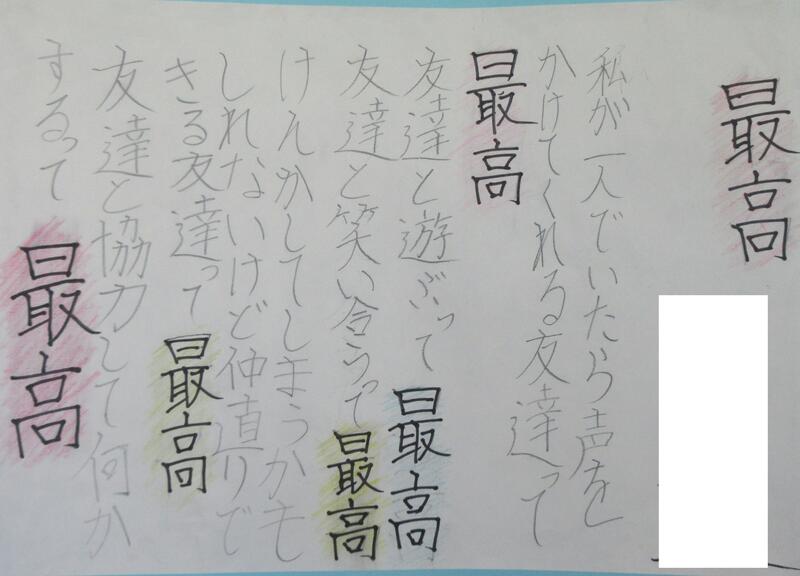 最高
私が一人でいたら声を
かけてくれる友達って
最高
友達と遊ぶって最高
友達と笑い合うって最高
けんかしてしまうかも
しれないけど仲直りで
きる友達って最高
友達と協力して何か
するって最高